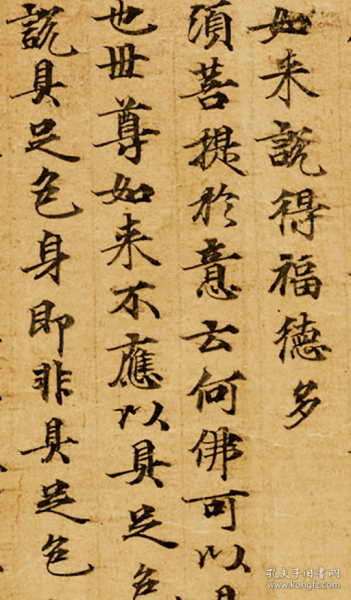 如来說得福德多
湏菩提於意云何佛可以具
也世尊如来不應以具足色
說具足色身即非具足色
孔夫子旧书网
www.kongfz.com